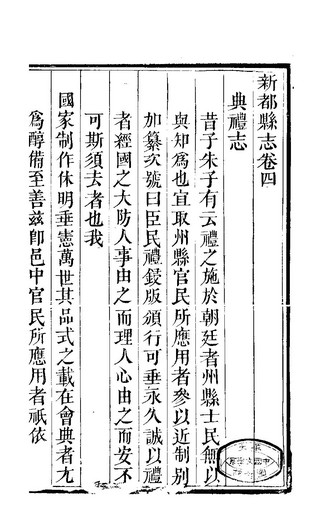 新都縣志卷四
典禮志
昔子朱子有云禮之施於朝廷者州縣士民無以
與知為也宜取州縣官民所應用者參以近制别
加纂次號曰臣民禮鋟版頒行可垂永久誠以禮
者經國之大防人事由之而理人心由之而安不
可斯須去者也我
國家制作休明垂憲萬世其品式之載在會典者尤
為醇備至善兹卽邑中官民所應用者祇依